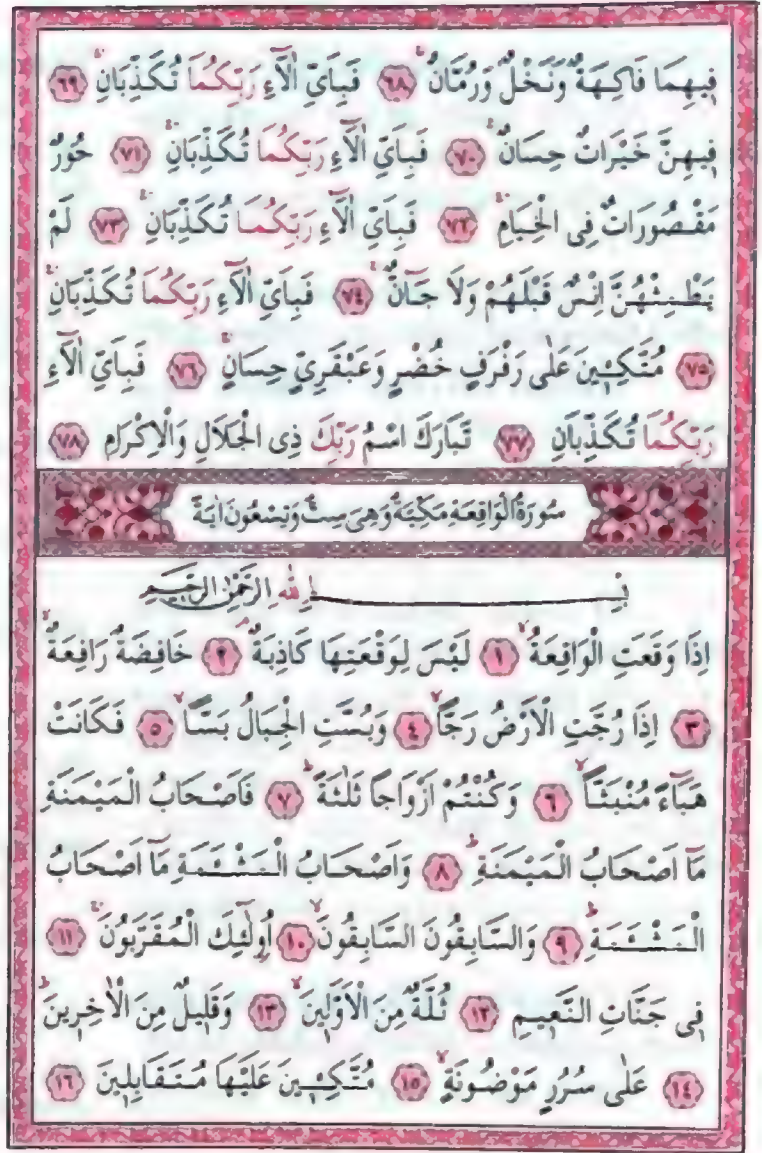 فِيهِمَا فَاكِهَةٌ وَنَخْلٌ وَرُمَّانٌ ﴿٦٨﴾ فَبِاَيِّ اٰلَٓاءِ رَبِّكُمَا تُكَذِّبَانِ ﴿٦٩﴾
فِيهِنَّ خَيْرَاتٌ حِسَانٌ ﴿٧٠﴾ فَبِاَيِّ اٰلَٓاءِ رَبِّكُمَا تُكَذِّبَانِ ﴿٧١﴾ حُورٌ
مَقْصُورَاتٌ فِى الْخِيَامِ ﴿٧٢﴾ فَبِاَيِّ اٰلَٓاءِ رَبِّكُمَا تُكَذِّبَانِ ﴿٧٣﴾ لَمْ
يَطْمِثْهُنَّ اِنْسٌ قَبْلَهُمْ وَلَا جَٓانٌّ ﴿٧٤﴾ فَبِاَيِّ اٰلَٓاءِ رَبِّكُمَا تُكَذِّبَانِ
﴿٧٥﴾ مُتَّكِـِٔينَ عَلٰى رَفْرَفٍ خُضْرٍ وَعَبْقَرِيٍّ حِسَانٍ ﴿٧٦﴾ فَبِاَيِّ اٰلَٓاءِ
رَبِّكُمَا تُكَذِّبَانِ ﴿٧٧﴾ تَبَارَكَ اسْمُ رَبِّكَ ذِى الْجَلَالِ وَالْاِكْرَامِ ﴿٧٨﴾
سُورَةُ الْوَاقِعَةِ مَكِّيَّةٌ وَهِىَ سِتٌّ وَتِسْعُونَ اٰيَةً
بِسْمِ اللّٰهِ الرَّحْمٰنِ الرَّحِيمِ
اِذَا وَقَعَتِ الْوَاقِعَةُ ﴿١﴾ لَيْسَ لِوَقْعَتِهَا كَاذِبَةٌ ﴿٢﴾ خَافِضَةٌ رَافِعَةٌ
﴿٣﴾ اِذَا رُجَّتِ الْاَرْضُ رَجًّا ﴿٤﴾ وَبُسَّتِ الْجِبَالُ بَسًّا ﴿٥﴾ فَكَانَتْ
هَبَٓاءً مُنْبَثًّا ﴿٦﴾ وَكُنْتُمْ اَزْوَاجًا ثَلٰثَةً ﴿٧﴾ فَاَصْحَابُ الْمَيْمَنَةِ
مَٓا اَصْحَابُ الْمَيْمَنَةِ ﴿٨﴾ وَاَصْحَابُ الْمَشْـَٔمَةِ مَٓا اَصْحَابُ
الْمَشْـَٔمَةِ ﴿٩﴾ وَالسَّابِقُونَ السَّابِقُونَ ﴿١٠﴾ اُولٰٓئِكَ الْمُقَرَّبُونَ ﴿١١﴾
فِى جَنَّاتِ النَّعِيمِ ﴿١٢﴾ ثُلَّةٌ مِنَ الْاَوَّلِينَ ﴿١٣﴾ وَقَلِيلٌ مِنَ الْاٰخِرِينَ
﴿١٤﴾ عَلٰى سُرُرٍ مَوْضُونَةٍ ﴿١٥﴾ مُتَّكِـِٔينَ عَلَيْهَا مُتَقَابِلِينَ ﴿١٦﴾